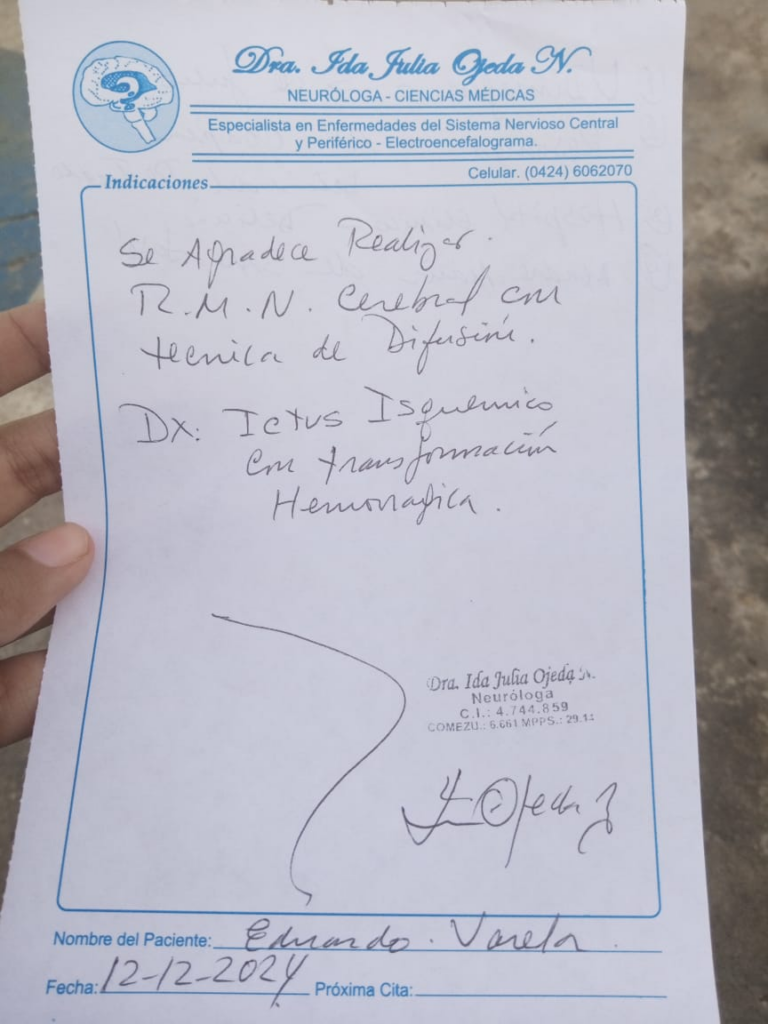 Dra. Ida Julia Ojeda N.
NEURÓLOGA - CIENCIAS MÉDICAS
Especialista en Enfermedades del Sistema Nervioso Central
y Periférico - Electroencefalograma.
Celular. (0424) 6062070
Indicaciones
Se Agradece Realizar.
R.M.N. Cerebral con
tecnica de Difusión.
DX: Ictus Isquemico
con transformación
Hemorragica.
Dra. Ida Julia Ojeda N.
Neuróloga
C.I.: 4.744.859
COMEZU.: 6.661 MPPS.:
Ojeda
Nombre del Paciente: Eduardo. Varela.
Fecha: 12-12-2024 Próxima Cita: